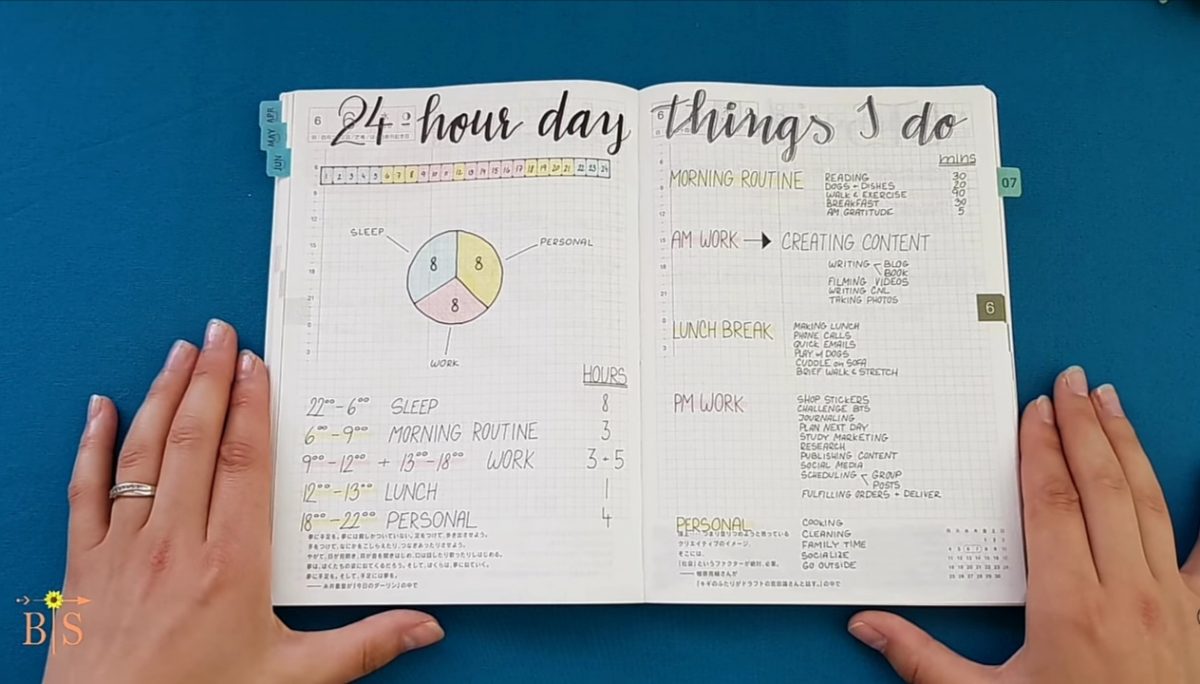 24-hour day
1 2 3 4 5 6 7 8 9 10 11 12 13 14 15 16 17 18 19 20 21 22 23 24
SLEEP
PERSONAL
8
8
8
WORK
HOURS
22⁰⁰-6⁰⁰ SLEEP 8
6⁰⁰-9⁰⁰ MORNING ROUTINE 3
9⁰⁰-12⁰⁰ + 13⁰⁰-18⁰⁰ WORK 3+5
12⁰⁰-13⁰⁰ LUNCH 1
18⁰⁰-22⁰⁰ PERSONAL 4
APR
MAY
JUN
things I do
mins
MORNING ROUTINE
READING 30
DOGS + DISHES 20
WALK & EXERCISE 90
BREAKFAST 30
AM GRATITUDE 5
AM WORK → CREATING CONTENT
WRITING BLOG
BOOK
FILMING VIDEOS
WRITING CNL
TAKING PHOTOS
LUNCH BREAK
MAKING LUNCH
PHONE CALLS
QUICK EMAILS
PLAY w/ DOGS
CUDDLE on SOFA
BRIEF WALK & STRETCH
PM WORK
SHOP STICKERS
CHALLENGE BTS
JOURNALING
PLAN NEXT DAY
STUDY MARKETING
RESEARCH
PUBLISHING CONTENT
SOCIAL MEDIA
SCHEDULING GROUP
POSTS
FULFILLING ORDERS + DELIVER
PERSONAL
COOKING
CLEANING
FAMILY TIME
SOCIALIZE
GO OUTSIDE
07
6
B S